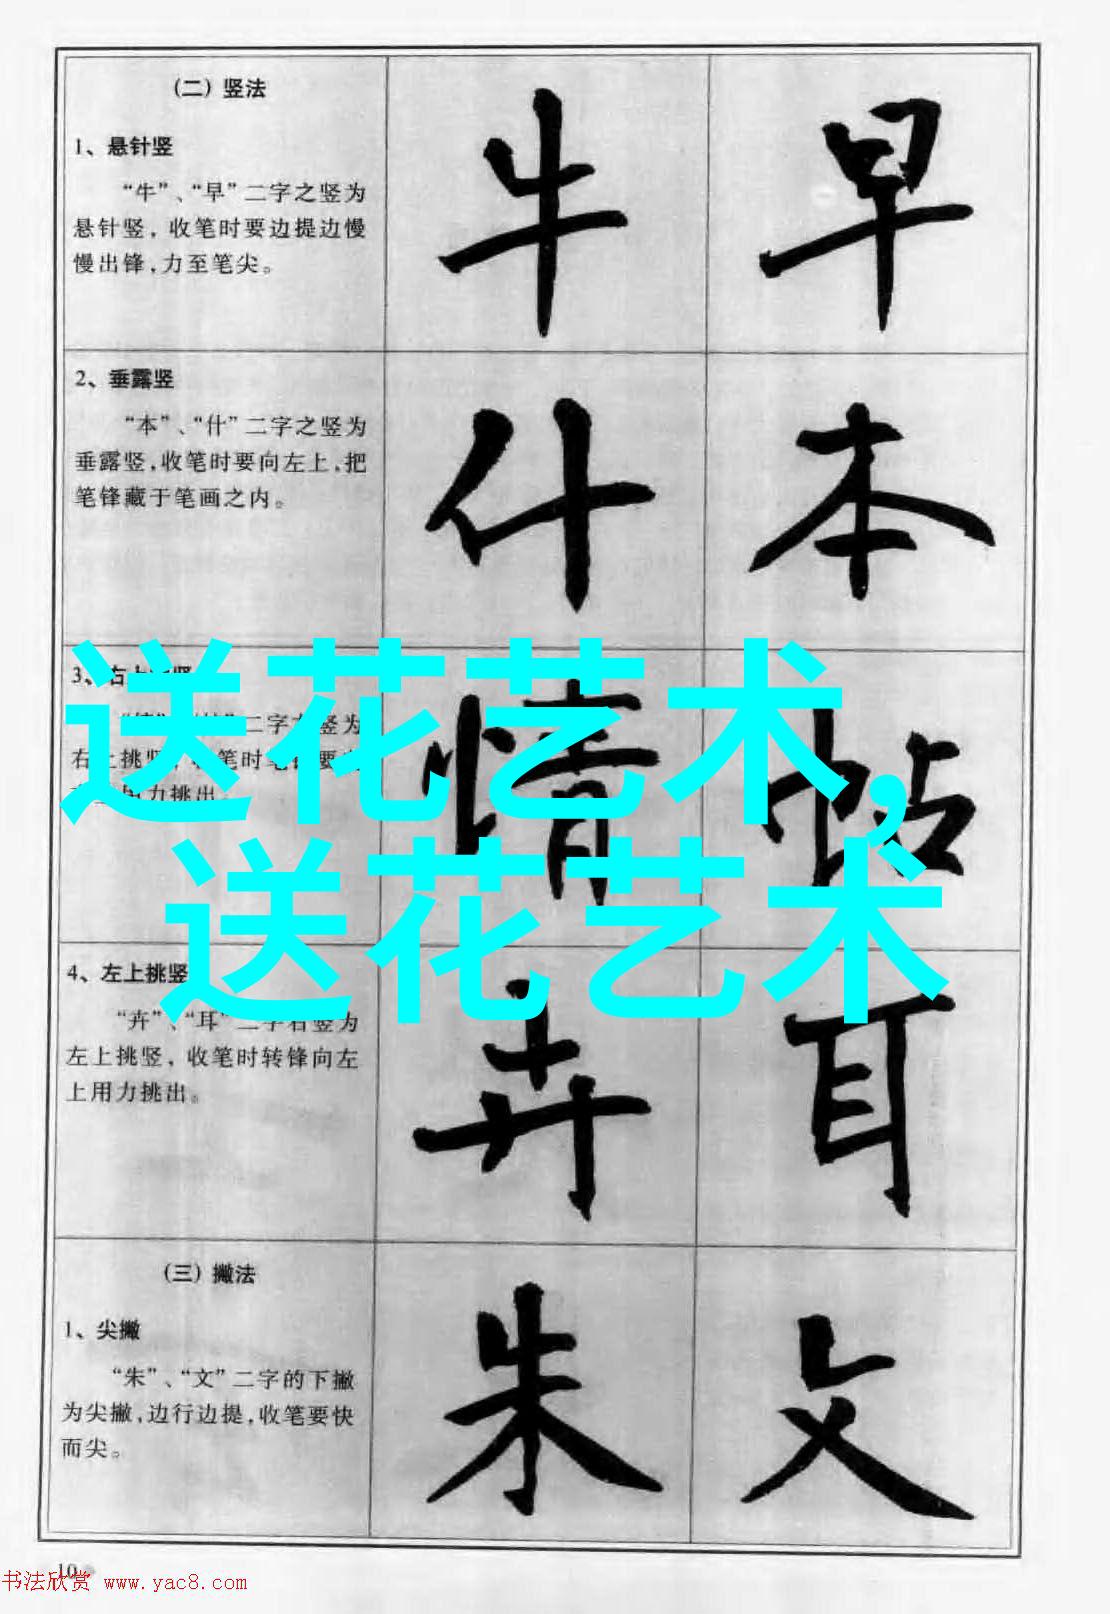 （二）竖法
1、悬针竖
“牛”、“早”二字之竖为
悬针竖，收笔时要边提边慢
慢出锋，力至笔尖。
牛 早
2、垂露竖
“本”、“什”二字之竖为
垂露竖，收笔时要向左上，把
笔锋藏于笔画之内。
什 本
3、右上 竖
二字 竖为
右上挑竖， 笔时 要
力挑出。
情 帖
送花艺术，
送花艺术
4、左上挑竖
“卉”、“耳”二字右竖为
左上挑竖，收笔时转锋向左
上用力挑出。
卉 耳
（三）撇法
1、尖撇
“朱”、“文”二字的下撇
为尖撇，边行边提，收笔要快
而尖。
朱 文
10
书法欣赏 www.yac8.com